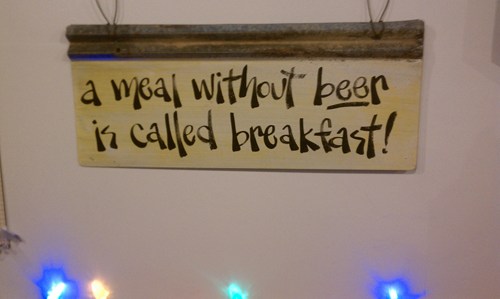 a meal without beer
is called breakfast!